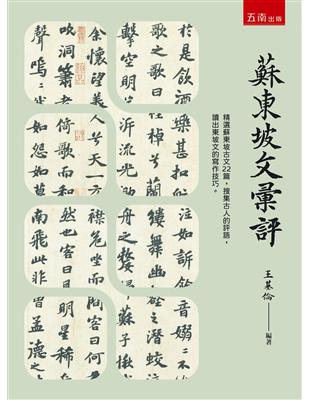 五南出版
蘇東坡文彙評
精選蘇東坡古文22篇，搜集古人的評語，
讀出東坡文的寫作技巧。
王基倫——編著
於是飲酒樂甚扣
歌之歌曰
擊空明泝流光
余懷望美人兮天一方
吹洞簫者倚歌而和
聲嗚嗚然如怨如慕
泣如訴餘音嫋嫋不
縷舞幽壑之潛蛟泣
舟之嫠婦蘇子愀
襟危坐而問客曰何
也客曰月明星稀
南飛此非曹孟德之